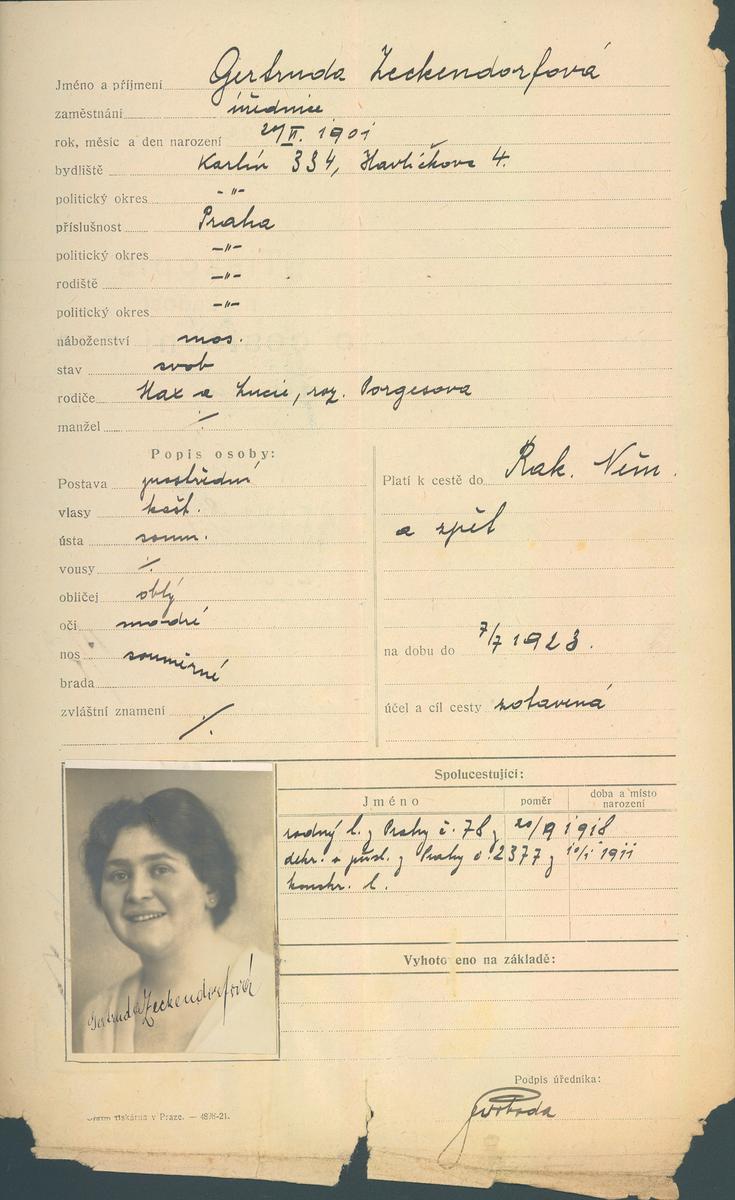 Jméno a příjmení Gertruda Zeckendorfová
zaměstnání úřednice
rok, měsíc a den narození II. 1901
bydliště Karlín 334, Havlíčkova 4.
politický okres -"-
příslušnost Praha
politický okres -"-
rodiště -"-
politický okres -"-
náboženství mos.
stav svob
rodiče Max a Lucie, roz. Porgesova
manžel ./.
Popis osoby:
Postava prostřední
vlasy kašt.
ústa soum.
vousy ./.
obličej oblý
oči modré
nos souměrné
brada
zvláštní znamení ./.
Platí k cestě do Rak. Něm.
a zpět
na dobu do 7/7 1923.
účel a cíl cesty zotavená
Spolucestující:
Jméno poměr doba a místo narození
rodný l. z Prahy č. 78 z 20/9 1918
dekr. o přísl. z Prahy č. 2377 z 10/1 1911
konskr. l.
Vyhoto eno na základě:
Gertruda Zeckendorfová
Podpis úředníka:
Svoboda
tiskárna v Praze. — 4826-21.